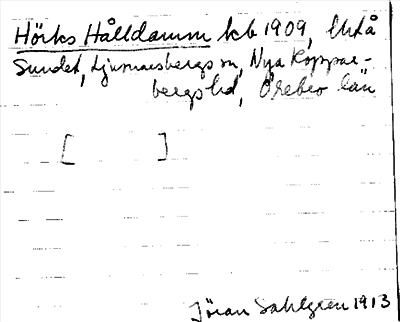 Hörks Hålldamm kb 1909, Utå
Sundet, Ljusnarsbergs sn, Nya Koppar-
bergs hd, Örebro län
[ ]
Jöran Sahlgren 1913